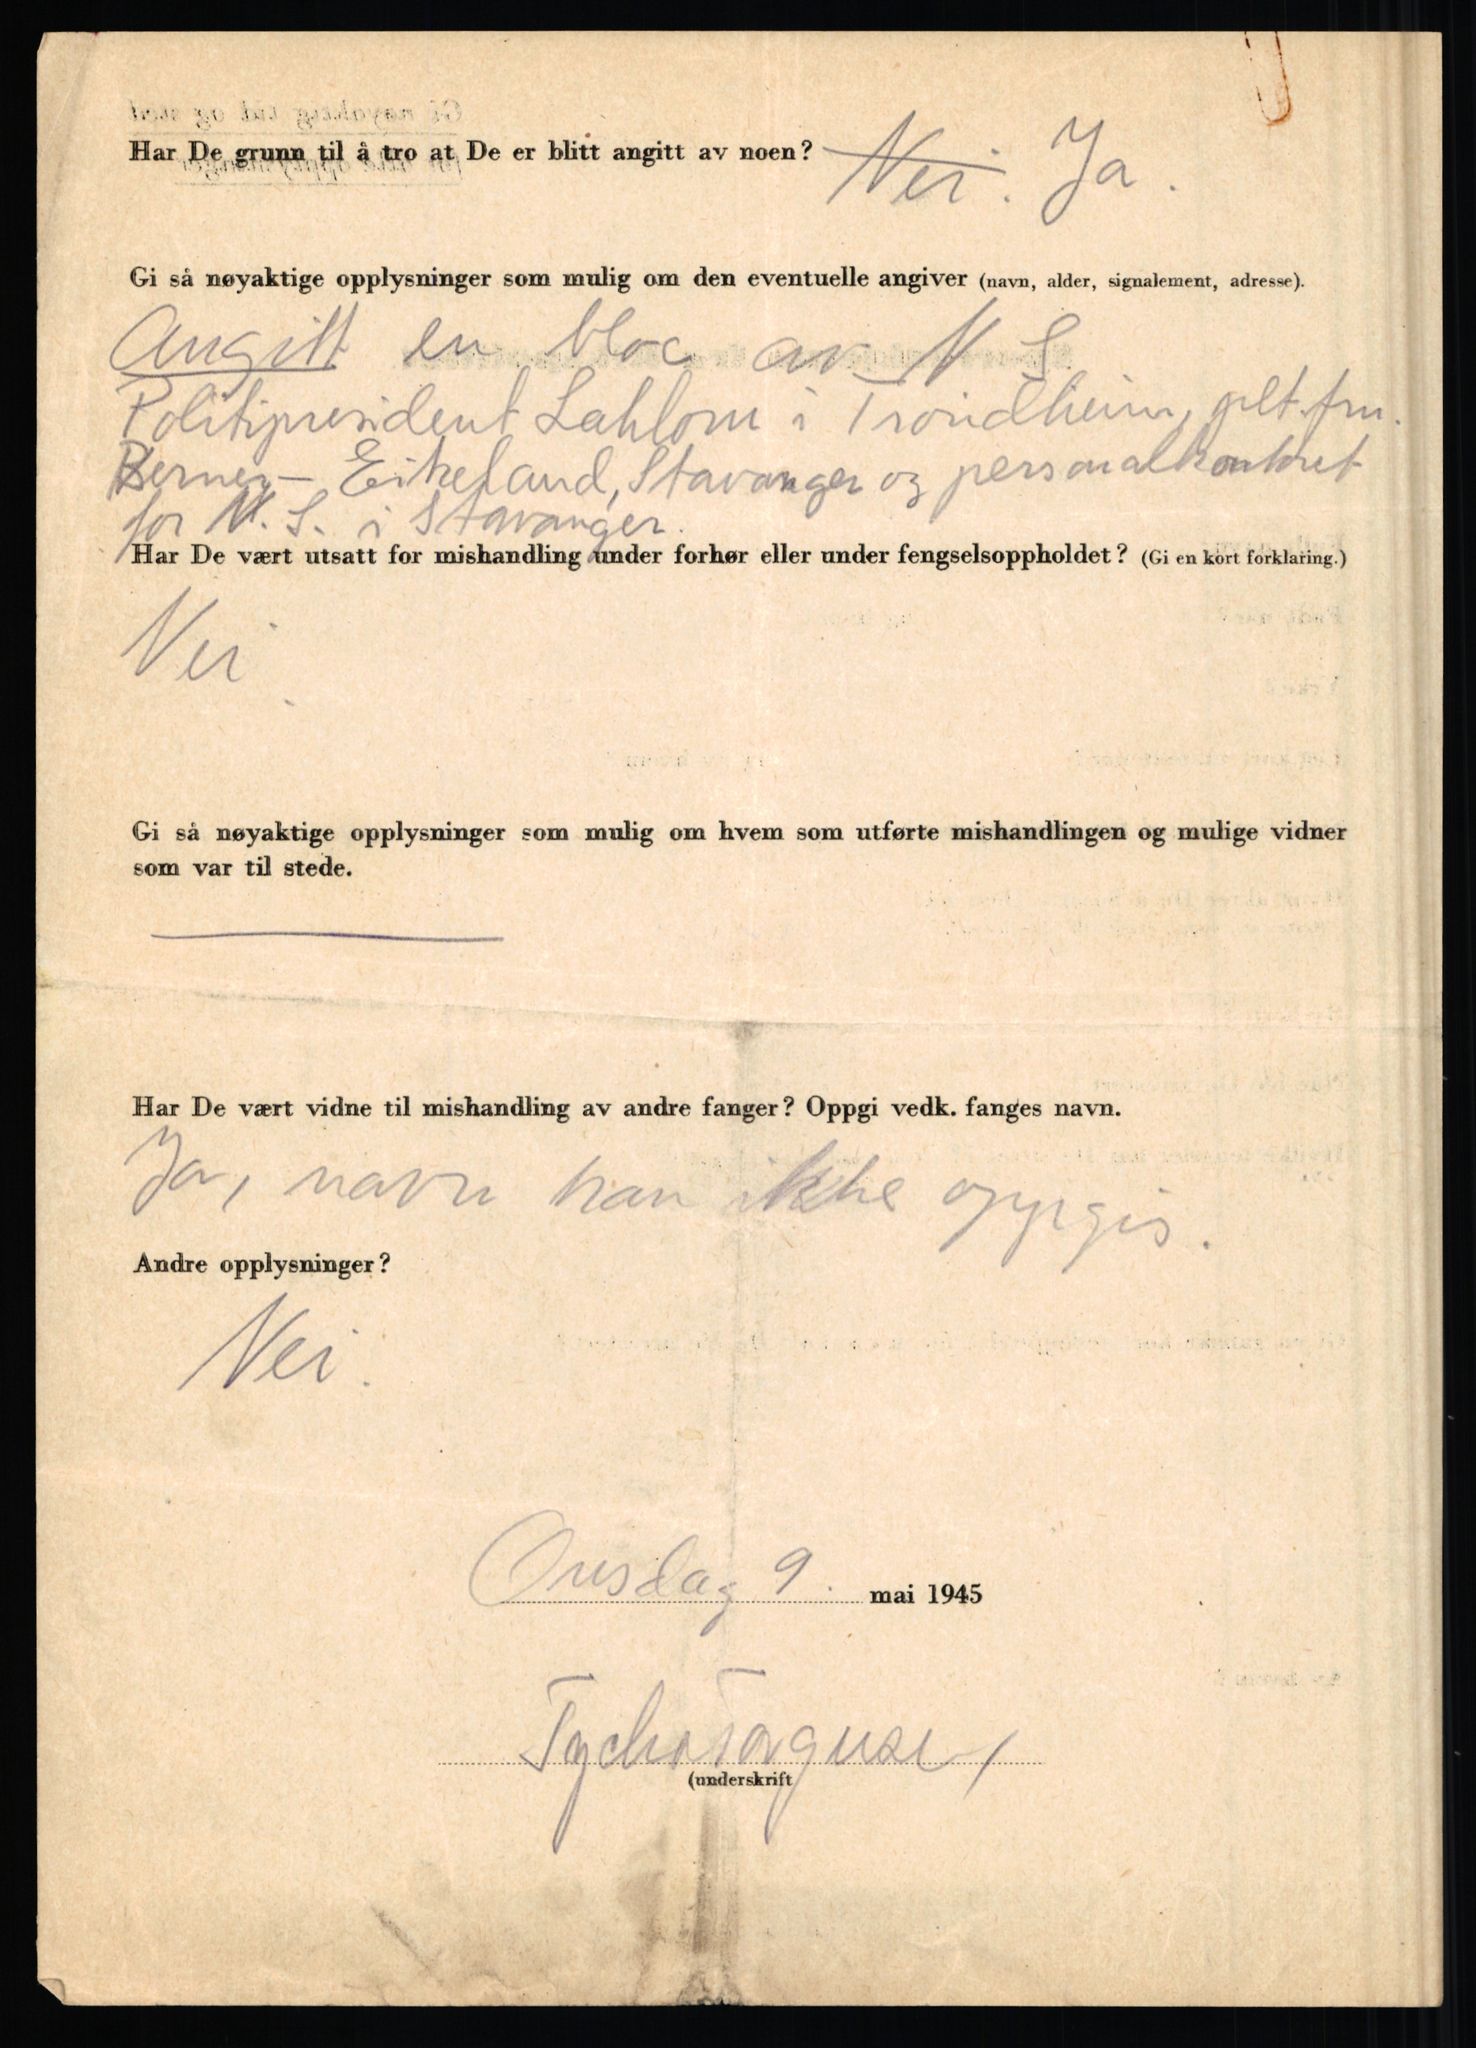 Har De grunn til å tro at De er blitt angitt av noen? Nei. Ja.
Gi så nøyaktige opplysninger som mulig om den eventuelle angiver (navn, alder, signalement, adresse).
Angitt en bloc av N S
Politipresident Lahlom i Trondheim, plt. fru.
Berner - Eikeland, Stavanger og personalkontoret
for N. S. i Stavanger.
Har De vært utsatt for mishandling under forhør eller under fengselsoppholdet? (Gi en kort forklaring.)
Nei
Gi så nøyaktige opplysninger som mulig om hvem som utførte mishandlingen og mulige vidner
som var til stede.
Har De vært vidne til mishandling av andre fanger? Oppgi vedk. fanges navn.
Ja, navn kan ikke oppgis.
Andre opplysninger?
Nei.
Onsdag 9. mai 1945
Tycho Torgusen
(underskrift